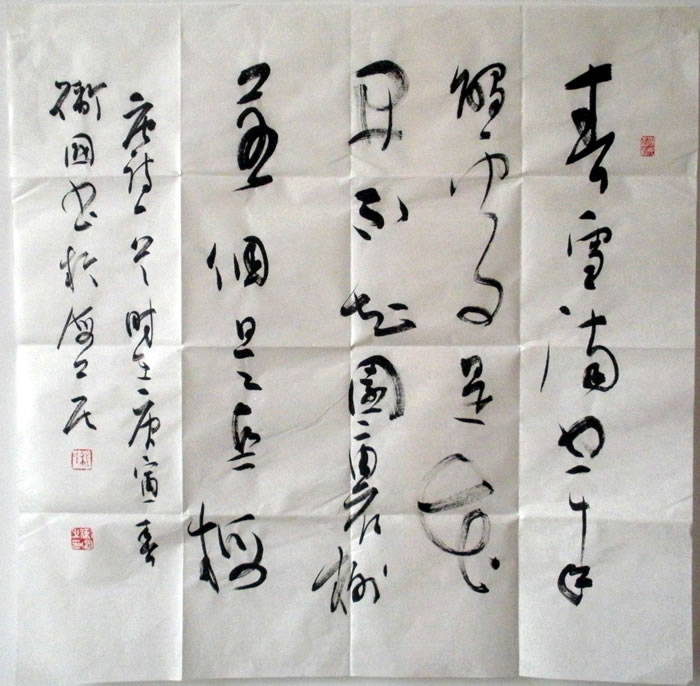 春雪滿空来
觸處是花
開不知園裏樹
若個是真梅
唐詩一首時在庚寅春
衛國書於海上居